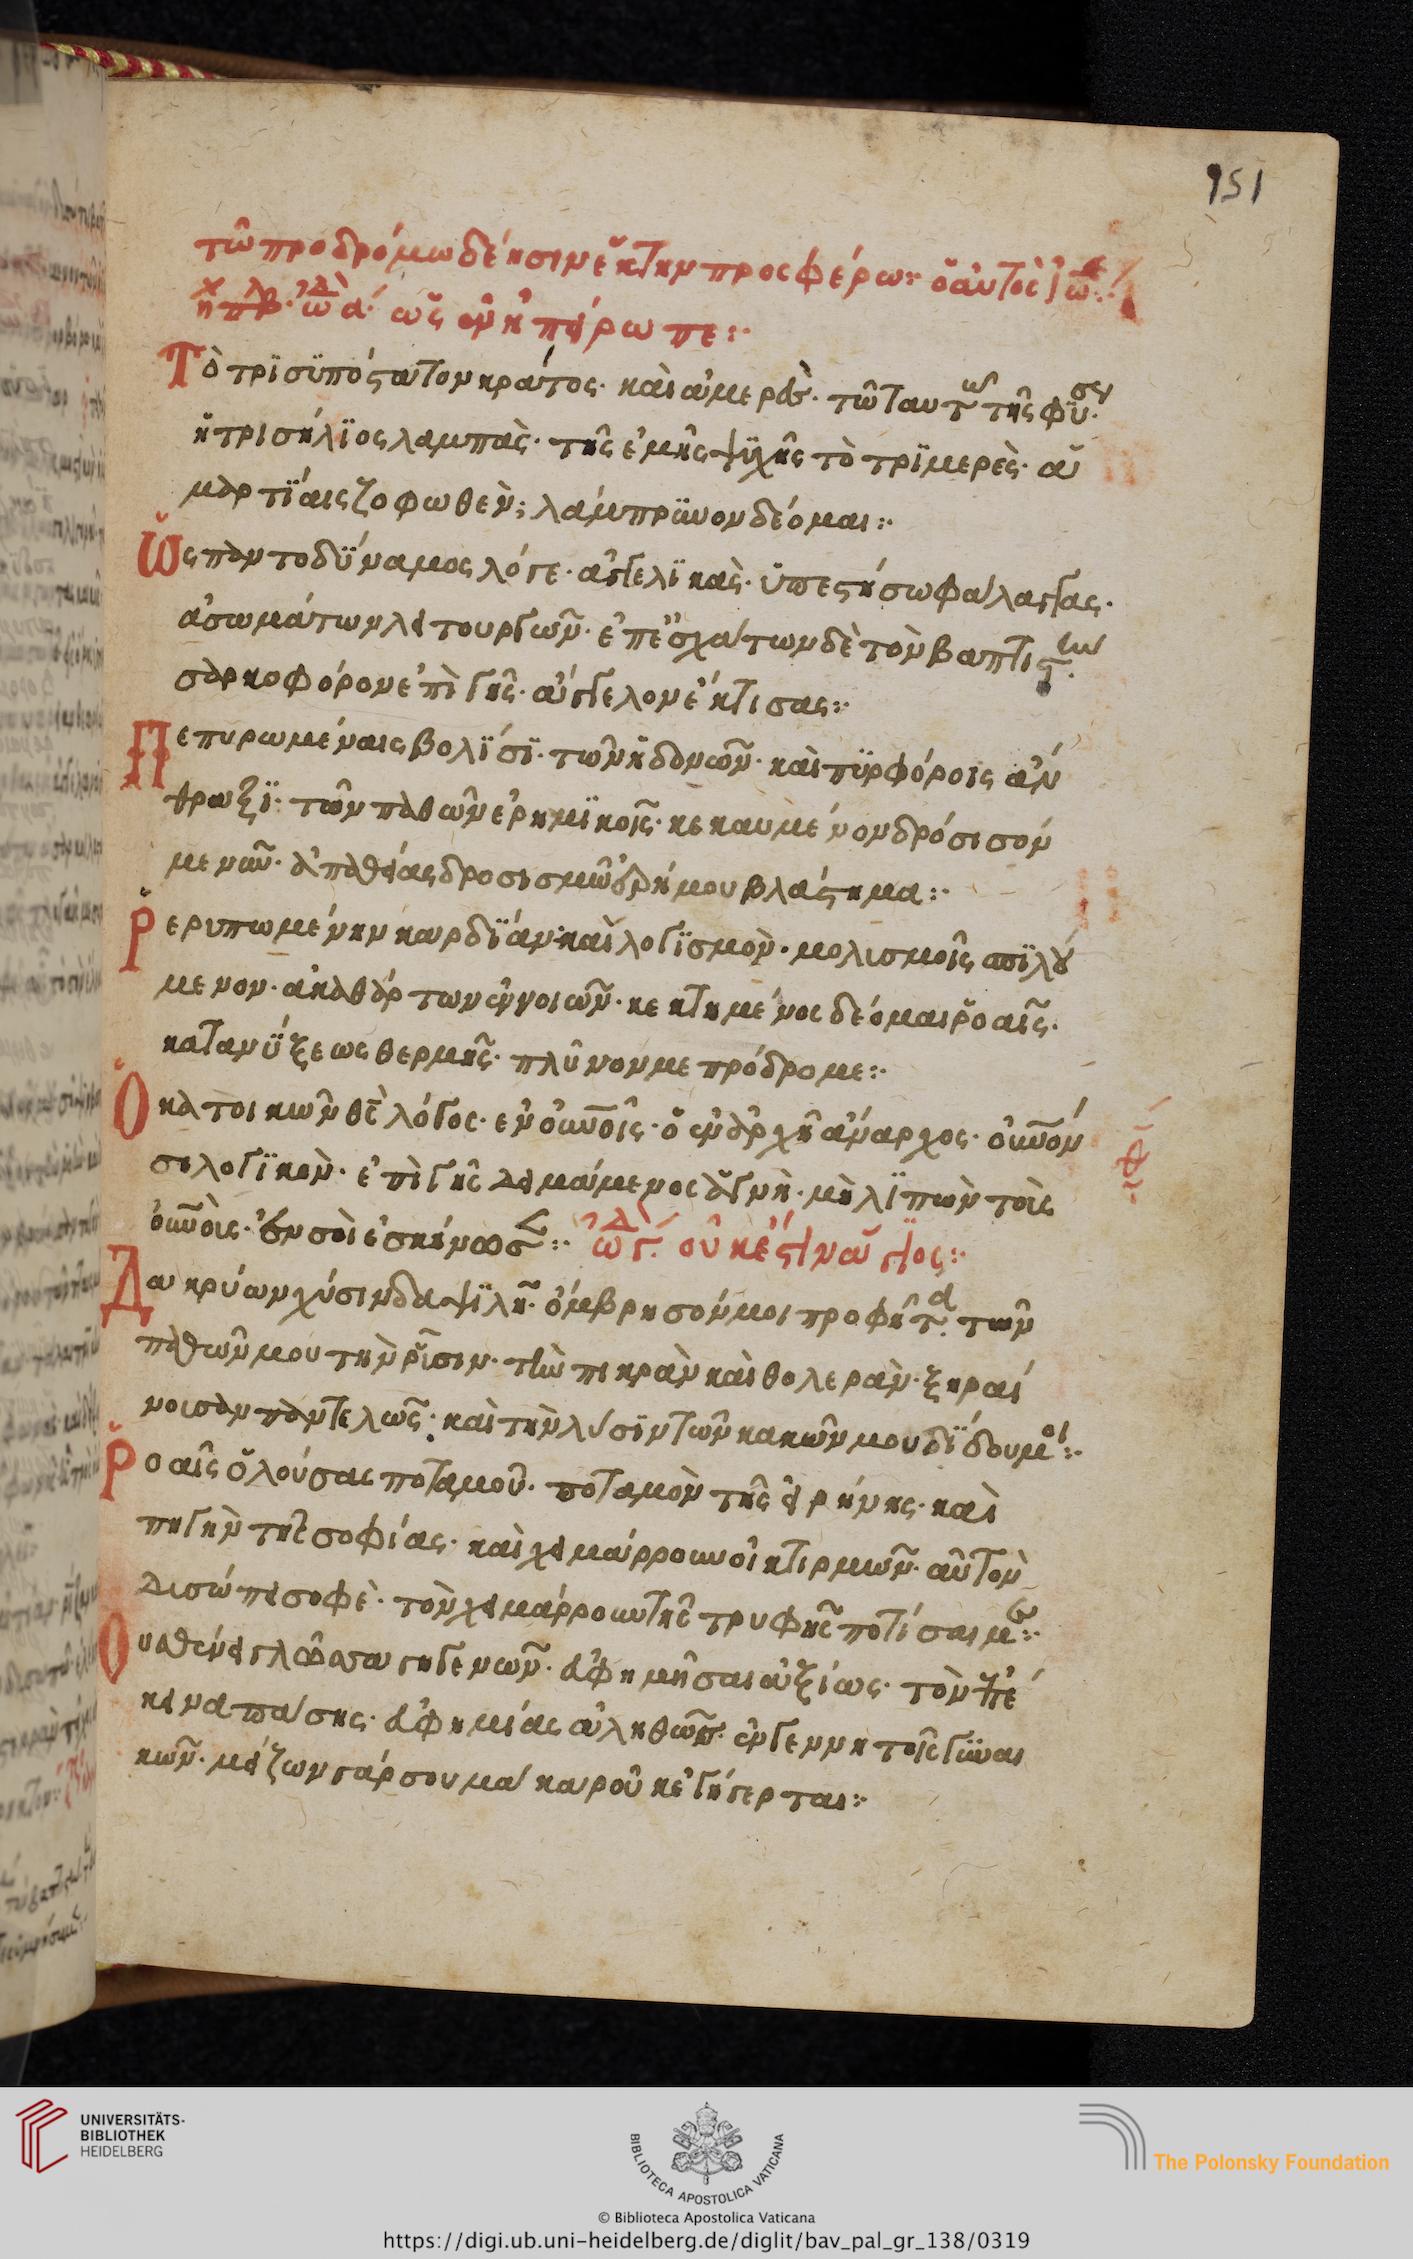 151
τῶ προδρόμω δέησιν ἕκτην προσφέρω:· ὁ αὐτὸς ἰω
ᾠδὴ α´ ὡς ἐν ἠπείρω πε:·
Τὸ τρϊσϋπόστατον κράτος· καὶ ἀμερὲς· τῶ ταυτῶ τῆς φύσει·
ἡ τρισήλϊος λαμπὰς· τῆς ἐμῆς ψϋχῆς τὸ τρϊμερὲς· ἁ
μαρτΐαις ζοφωθὲν; λάμπρϋνον δέομαι:·
Ὡς παντοδΰναμος λόγε· ἀγγελϊκὰς· ὑπεστήσω φάλαγγας·
ἀσωμάτων λειτουργῶν· ἐπ' ἐσχάτων δὲ τὸν βαπτιστ
σαρκοφόρον ἐπὶ γῆς· ἄγγελον ἔκτισας:·
Πεπυρωμέναις βολΐσϊ· τῶν ἡδονῶν· καὶ πϋρφόροις ἄν
θραξϊ· τῶν παθῶν ἐρημϊκοῖς· κεκαυμένον δρόσισόν
με νῦν· ἀπαθείας δροσισμῶ ἐρήμου βλάστημα:·
Ῥερυπωμένην καρδΐαν· καὶ λογϊσμὸν· μολισμοῖς σπϊλού
μενον· ἀκαθάρτων ἐννοιῶν· κεκτημένος δέομαι ῥοαῖς·
κατανΰξεως θερμῆς· πλῦνον με πρόδρομε:·
Ὁ κατοικῶν θς λόγος· ἐν οὐνοῖς· ὁ ἐν ἀρχῆ ἄναρχος· οὐνόν
σε λογϊκὸν· ἐπὶ γῆς δειμάμενος ἁγνὴ· μὴ λϊπὼν τοὶς
οὐνοὶς· ἐν σοὶ ἐσκήνωσ:· ᾠδ γ· οὐκ ἔστϊν ἅγϊος:·
Δακρύων χύσιν δαψϊλῆ· ὄμβρησόν μοι προφῆτα τῶν
παθῶν μου τὴν ῥῦσιν· τὴν πικρὰν καὶ θολερὰν· ξηραί
νουσαν παντελῶς· καὶ τὴν λύσϊν τῶν κακῶν μου δΐδου μοι:·
Ῥοαῖς ὁ λούσας ποταμοῦ· ποταμὸν τῆς εἰρήνης· καὶ
πηγὴν τῆς σοφίας· καὶ χειμάρρουν οἰκτιρμῶν· αὐτὸν
δυσώπει σοφὲ· τὸν χειμάρρουν τῆς τρυφῆς ποτίσαι με:·
Οὐ σθένει γλῶσσα γηγενῶν· εὐφημῆσαι ἀξίως· τὸν ἐπέ
κεινα πάσης· εὐφημίας ἀληθῶς· ἐν γεννητοῖς γϋναι
κῶν· μείζων γάρ σου μάκαρ οὐκ ἐγήγερται:·
UNIVERSITÄTS-
BIBLIOTHEK
HEIDELBERG
BIBLIOTECA APOSTOLICA VATICANA
© Biblioteca Apostolica Vaticana
The Polonsky Foundation
https://digi.ub.uni-heidelberg.de/diglit/bav_pal_gr_138/0319